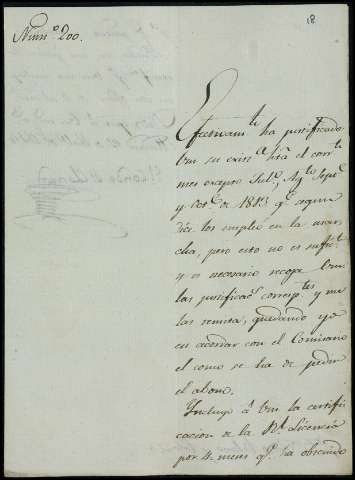 18
Num.º 200.
Efectivam.te ha justificado
Vm su exist.ª h.ta el corr.te
mes excepto Jul.º, Ag.to Sep.e
y Oct.e de 1813 q.e segun
dice los empleó en la mar
cha, pero esto no es sufic.te
y es necesario recoja Vm
las justificac.s corresp.tes y me
las remita, quedando yo
en acordar con el Comisario
el como se ha de pedir
el abono.
Incluyo á Vm la certifi
cacion de la R.l Licencia
por 4 meses q.e ha obtenido